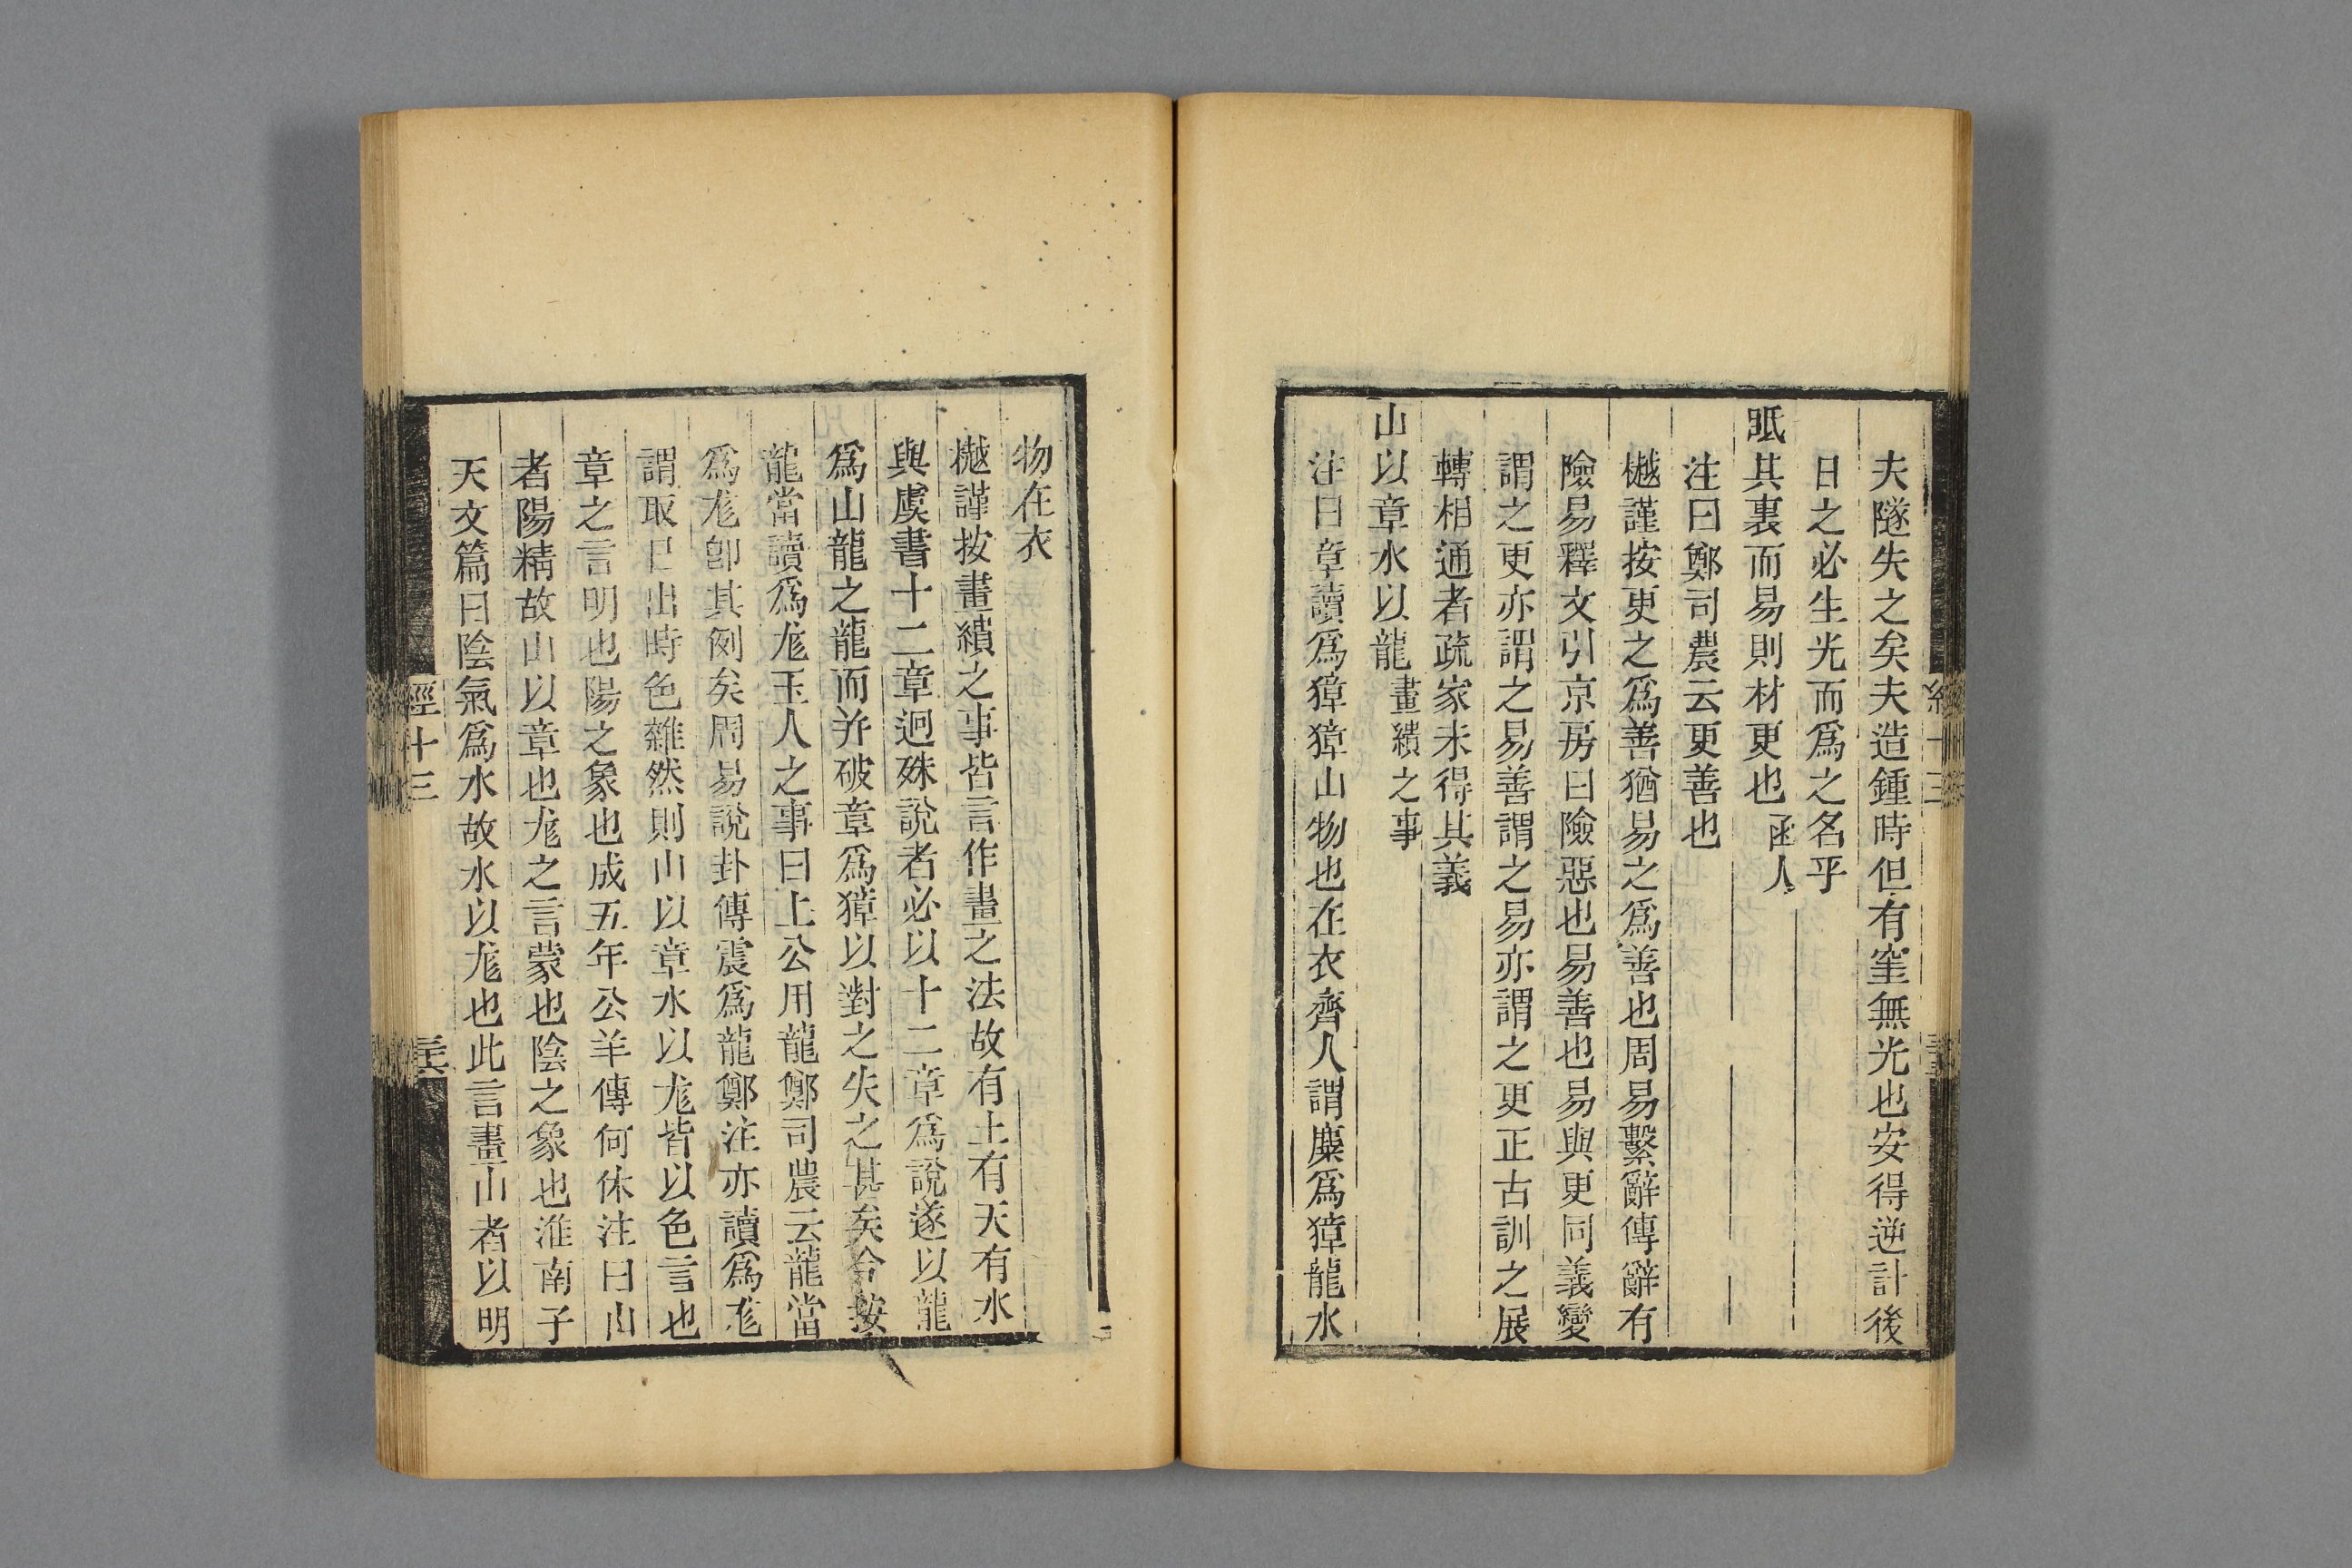 夫隧失之矣夫造鍾時但有窐無光也安得逆計後
日之必生光而爲之名乎
眂其裏而易則材更也函人
注曰鄭司農云更善也
樾謹按更之爲善猶易之爲善也周易繫辭傳辭有
險易釋文引京房曰險惡也易善也易與更同義變
謂之更亦謂之易善謂之易亦謂之更正古訓之展
轉相通者疏家未得其義
山以章水以龍畫繢之事
注曰章讀爲獐獐山物也在衣齊人謂麇爲獐龍水
物在衣
樾謹按畫繢之事皆言作畫之法故有土有天有水
與虞書十二章迥殊說者必以十二章爲說遂以龍
爲山龍之龍而并破章爲獐以對之失之甚矣今按
龍當讀爲尨玉人之事曰上公用龍鄭司農云龍當
爲尨卽其例矣周易說卦傳震爲龍鄭注亦讀爲尨
謂取日出時色雜然則山以章水以尨皆以色言也
章之言明也陽之象也成五年公羊傳何休注曰山
者陽精故山以章也尨之言蒙也陰之象也淮南子
天文篇曰陰氣爲水故水以尨也此言畫山者以明
經十三